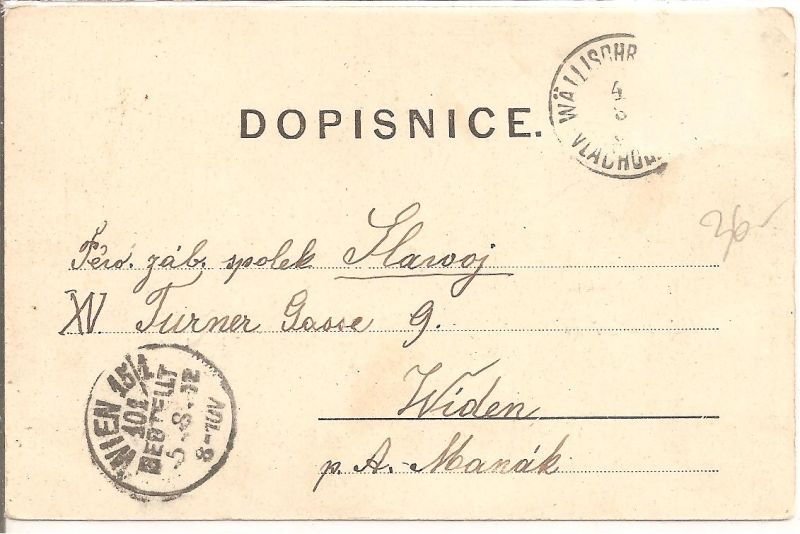 DOPISNICE.
WÄLLISCHB
4
8
VLACHOB
36-
záb. spolek Slavoj
XV. Turner Gasse 9.
Widen
p. A. Manák
WIEN 15/1
101
BESTELLT
5.-8.-12
8-10V